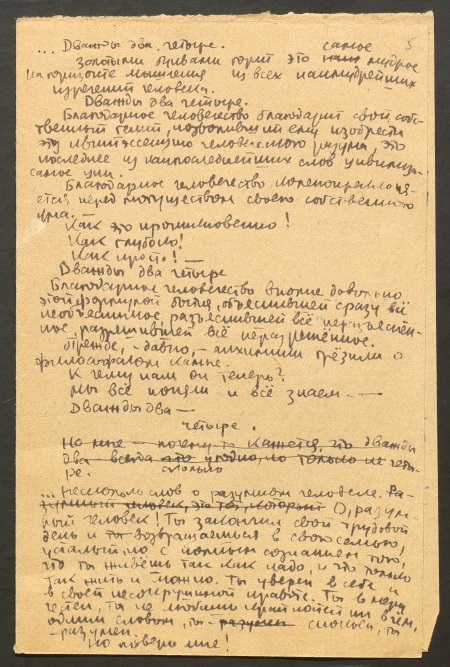 ... Дважды два четыре. самое 5
Золотыми буквами горит это мудрое
на горизонте мышления из всех наимудрейших
изречений человека.
Дважды два четыре.
Благодарное человечество благодарит свой собст-
твенный гений, позволивший ему изобрести
эту квинтэссенцию человеческого разума, это
последнее из наипоследнейших слов цивилиза-
самое ции.
Благодарное человечество коленопреклоня-
ется перед могуществом своего собственного
ума. —
Как это проникновенно!
Как глубоко!
Как просто! —
Дважды два четыре
Благодарное человечество вполне довольно
этой формулой бытия, объяснившей сразу всё
необъяснимое, разъяснившей всё неразъяснён-
ное, разрешившей всё неразрешённое.
Прежде, - давно, - алхимики грезили о
философском камне.
К чему нам он теперь?
Мы всё поняли и всё знаем. —
Дважды два —
четыре.
Но мне — почему-то кажется, что дважды
два — всегда что угодно, но только не четы-
ре. сколько
... Несколько слов о разумном человеке. Ра-
зумный человек, это тот, который О, разум-
ный человек! Ты закончил свой трудовой
день и ты возвращаешься в свою семью,
усталый, но, с полным сознанием того,
что ты живёшь так как надо, и что только
так жить и можно. Ты уверен в себе и
в своей несокрушимой правоте. Ты в меру
ты не любишь крайностей ни в чём,
одним словом, ты — разумен ты
- разумен.
Но поверь мне!